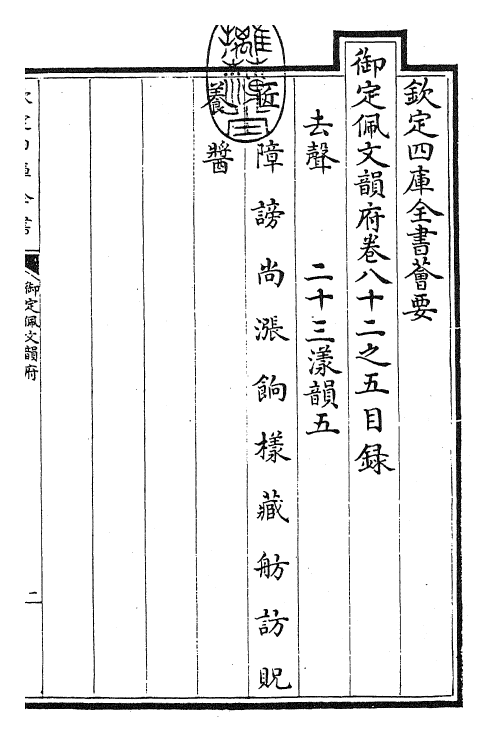 欽定四庫全書薈要
御定佩文韻府卷八十二之五目録
去聲 二十三漾韻五
匠障謗尚漲餉樣藏舫訪貺
養醬
御定佩文韻府
二